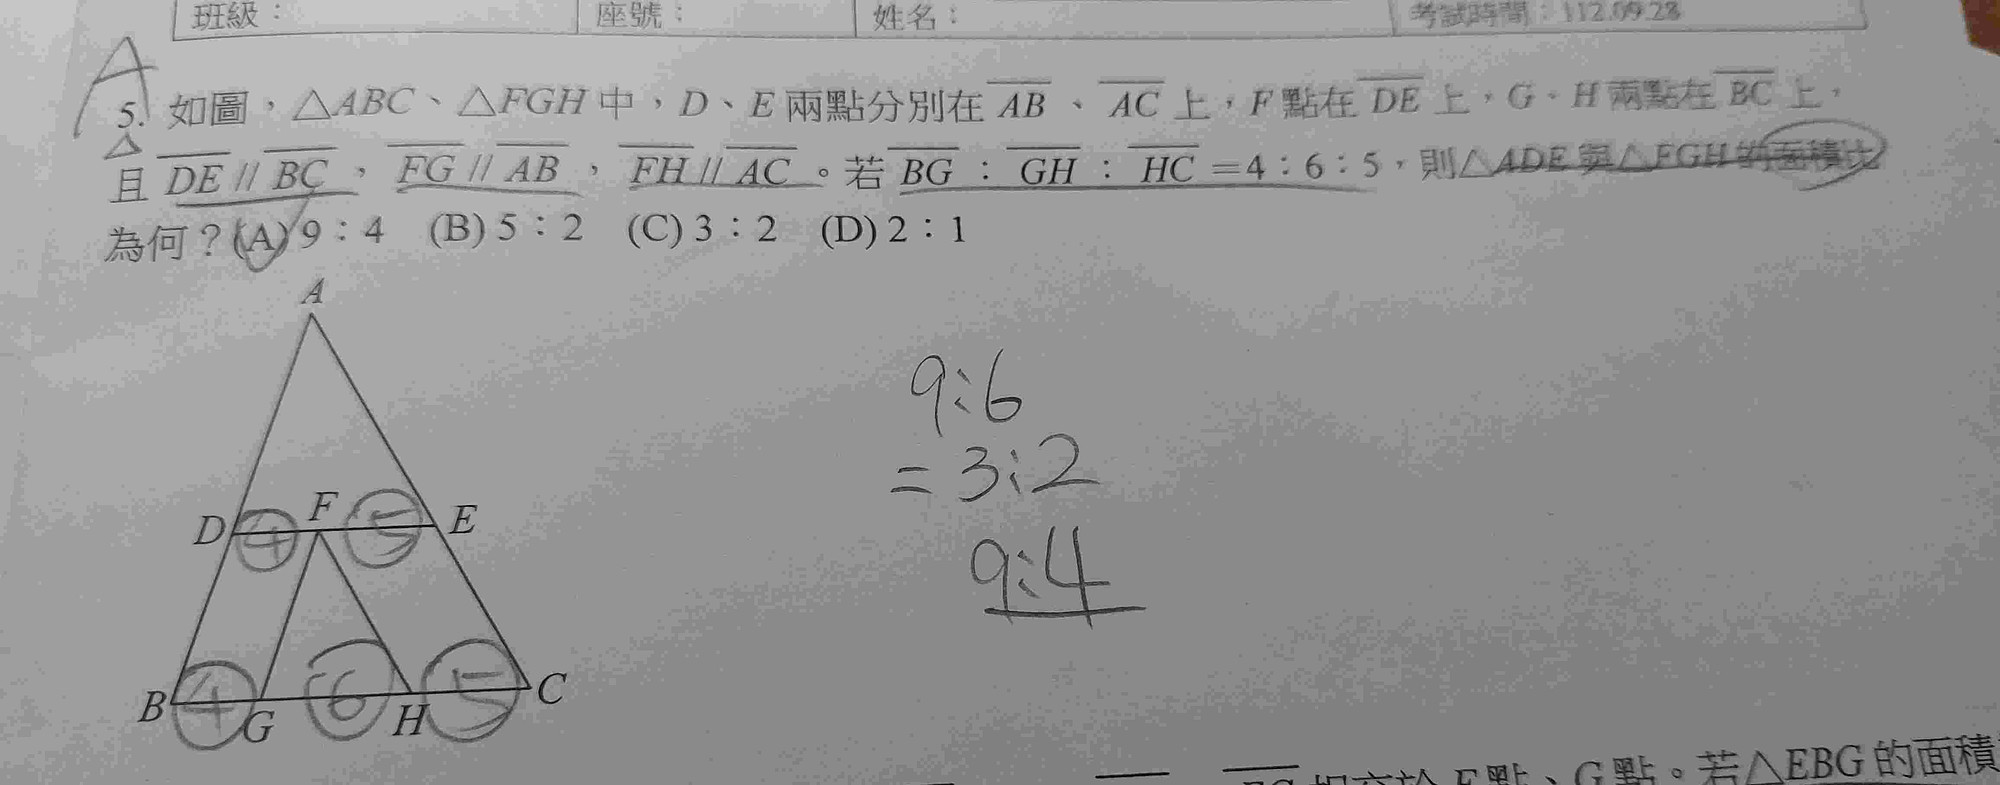 班級： 座號： 姓名： 考試時間：112.09.28
A
5. 如圖，△ABC、△FGH 中，D、E 兩點分別在 AB 、 AC 上，F 點在 DE 上，G、H 兩點在 BC 上，
且 DE // BC ， FG // AB ， FH // AC 。若 BG ： GH ： HC =4：6：5，則△ADE 與△FGH 的面積比
為何？(A) 9：4 (B) 5：2 (C) 3：2 (D) 2：1
A
9:6
= 3:2
9:4
D 4 F 5 E
B 4 G 6 H 5 C
點、G 點。若△EBG 的面積